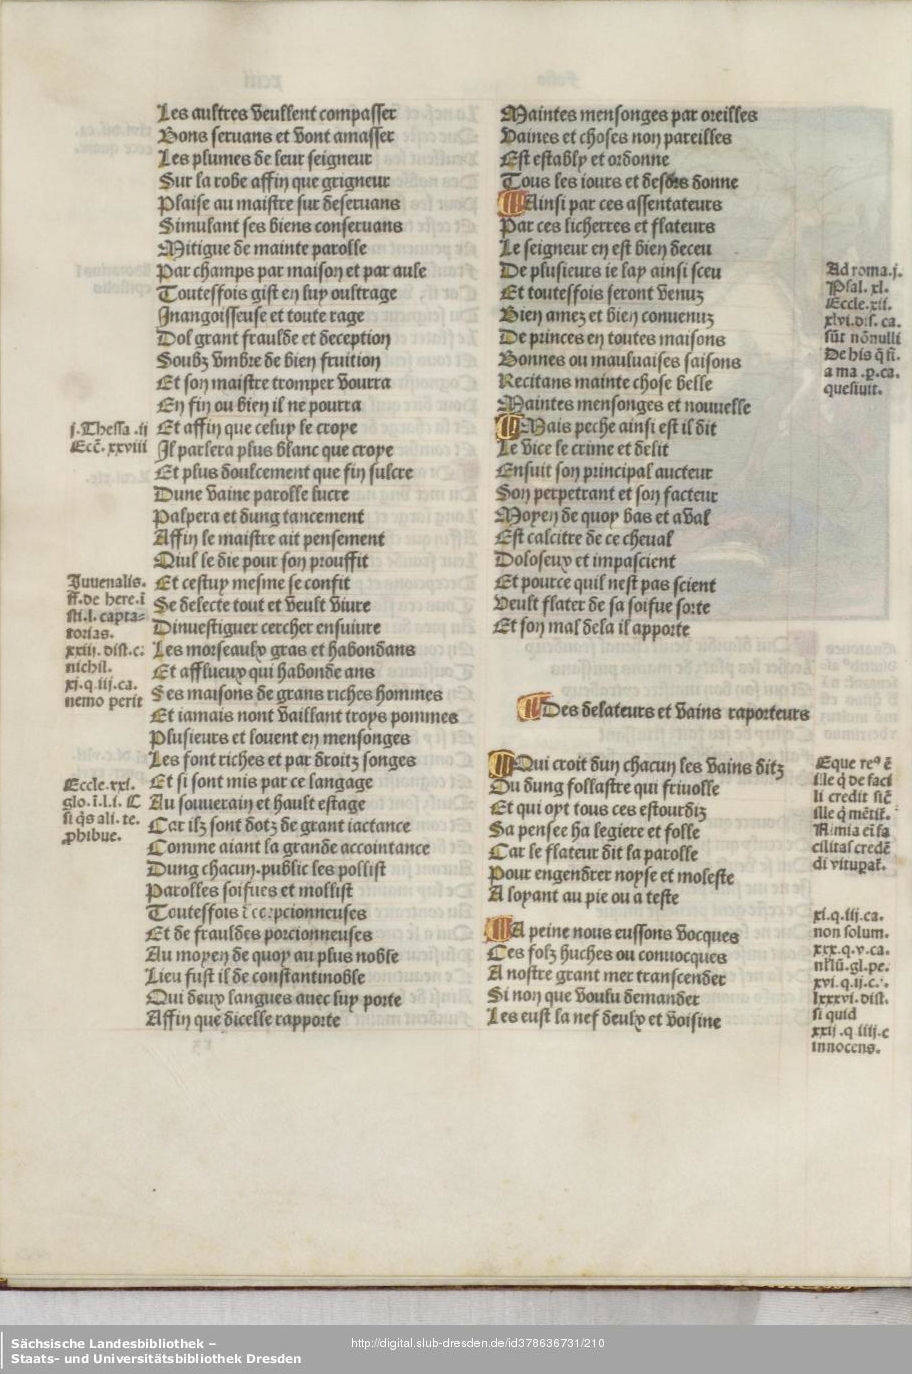 Les aultres veullent compasser
Bons seruans et vont amasser
Les plumes de leur seigneur
Sur la robe affin que grigneur
Plaise au maistre sur deseruans
Simulant ses biens conseruans
Mitigue de mainte parolle
Par champs par maison et par aule
Toutesfois gist en luy oultrage
Inangoisseuse et toute rage
Dol grant fraulde et deception
Soubz vmbre de bien fruition
Et son maistre tromper vourra
En fin ou bien il ne pourra
Et affin que celuy le croye
Il parlera plus blanc que croye
Et plus doulcement que fin sulcre
Dune vaine parolle lucre
Palpera et dung tancement
Affin le maistre ait pensement
Quil le die pour son prouffit
Et cestuy mesme se confit
Se delecte tout et veult viure
Dinuestiguer cercher ensuiure
Les morseaulx gras et habondans
Et afflueux qui habonde ans
Ses maisons de grans riches hommes
Et iamais nont vaillant troys pommes
Plusieurs et souent en mensonges
Les font riches et par droitz songes
Et si sont mis par ce langage
Au souuerain et hault estage
Car ilz sont dotz de grant iactance
Comme aiant la grande accointance
Dung chacun.public les pollist
Parolles soifues et mollist
Toutesfois
Et de frauldes porcionneuses
Au moyen de quoy au plus noble
Lieu fust il de constantinoble
Qui deux langues auec luy porte
Affin que dicelle rapporte
j.Thessa.ij
Eccē.xxviii
Juuenalis.
ff.de here.ī
sti.l. capta=
torias.
xxiij.dist.c.
nichil.
xj.q iij.ca.
nemo perit
Eccle.xxi.
glo.ī.l.i. C
si q̄s ali. te.
phibue.
Maintes mensonges par oreilles
Vaines et choses non pareilles
Est estably et ordonne
Tous les iours et desdrs donne
Ainsi par ces assentateurs
Par ces licherres et flateurs
Le seigneur en est bien deceu
De plusieurs ie lay ainsi sceu
Et toutesfois seront venuz
Bien amez et bien conuenuz
De princes en toutes maisons
Bonnes ou mauluaises saisons
Recitans mainte chose belle
Maintes mensonges et nouuelle
Mais peche ainsi est il dit
Le vice le crime et delit
Ensuit son principal aucteur
Son perpetrant et son facteur
Moyen de quoy bas et aval
Est calcitre de ce cheual
Doloseux et impascient
Et pource quil nest pas scient
Veult flater de sa soifue sorte
Et son mal dela il apporte
Des delateurs et vains raporteurs
Qui croit dun chacun les vains ditz
Ou dung follastre qui friuolle
Et qui oyt tous ces estourdiz
Sa pensee ha legiere et folle
Car le flateur dit la parolle
Pour engendrer noyse et moleste
A loyant au pie ou a teste
A peine nous eussons vocques
Ces folz huches ou conuocques
A nostre grant mer transcender
Si non que voulu demander
Les eust la nef deulx et voisine
Ad roma.j.
Psal. xl.
Eccle.xii.
xlvi.dis. ca.
sūt nōnulli
De his q̄ sī.
a ma .p.ca.
quesiuit.
Eque reꝰ ē
ille q̄ de faci
li credit sic̄
ille q̄ mētit̄.
Nimia eī fa
cilitas credē
di vitupat̄.
xi.q.iij.ca.
non solum.
xxx.q.v.ca.
nullū.gl.pe.
xvi.q.ij.c.
lxxxvi.dist.
si quid
xxij.q iiij.c
innocens.
Sächsische Landesbibliothek –
Staats- und Universitätsbibliothek Dresden
http://digital.slub-dresden.de/id378636731/210